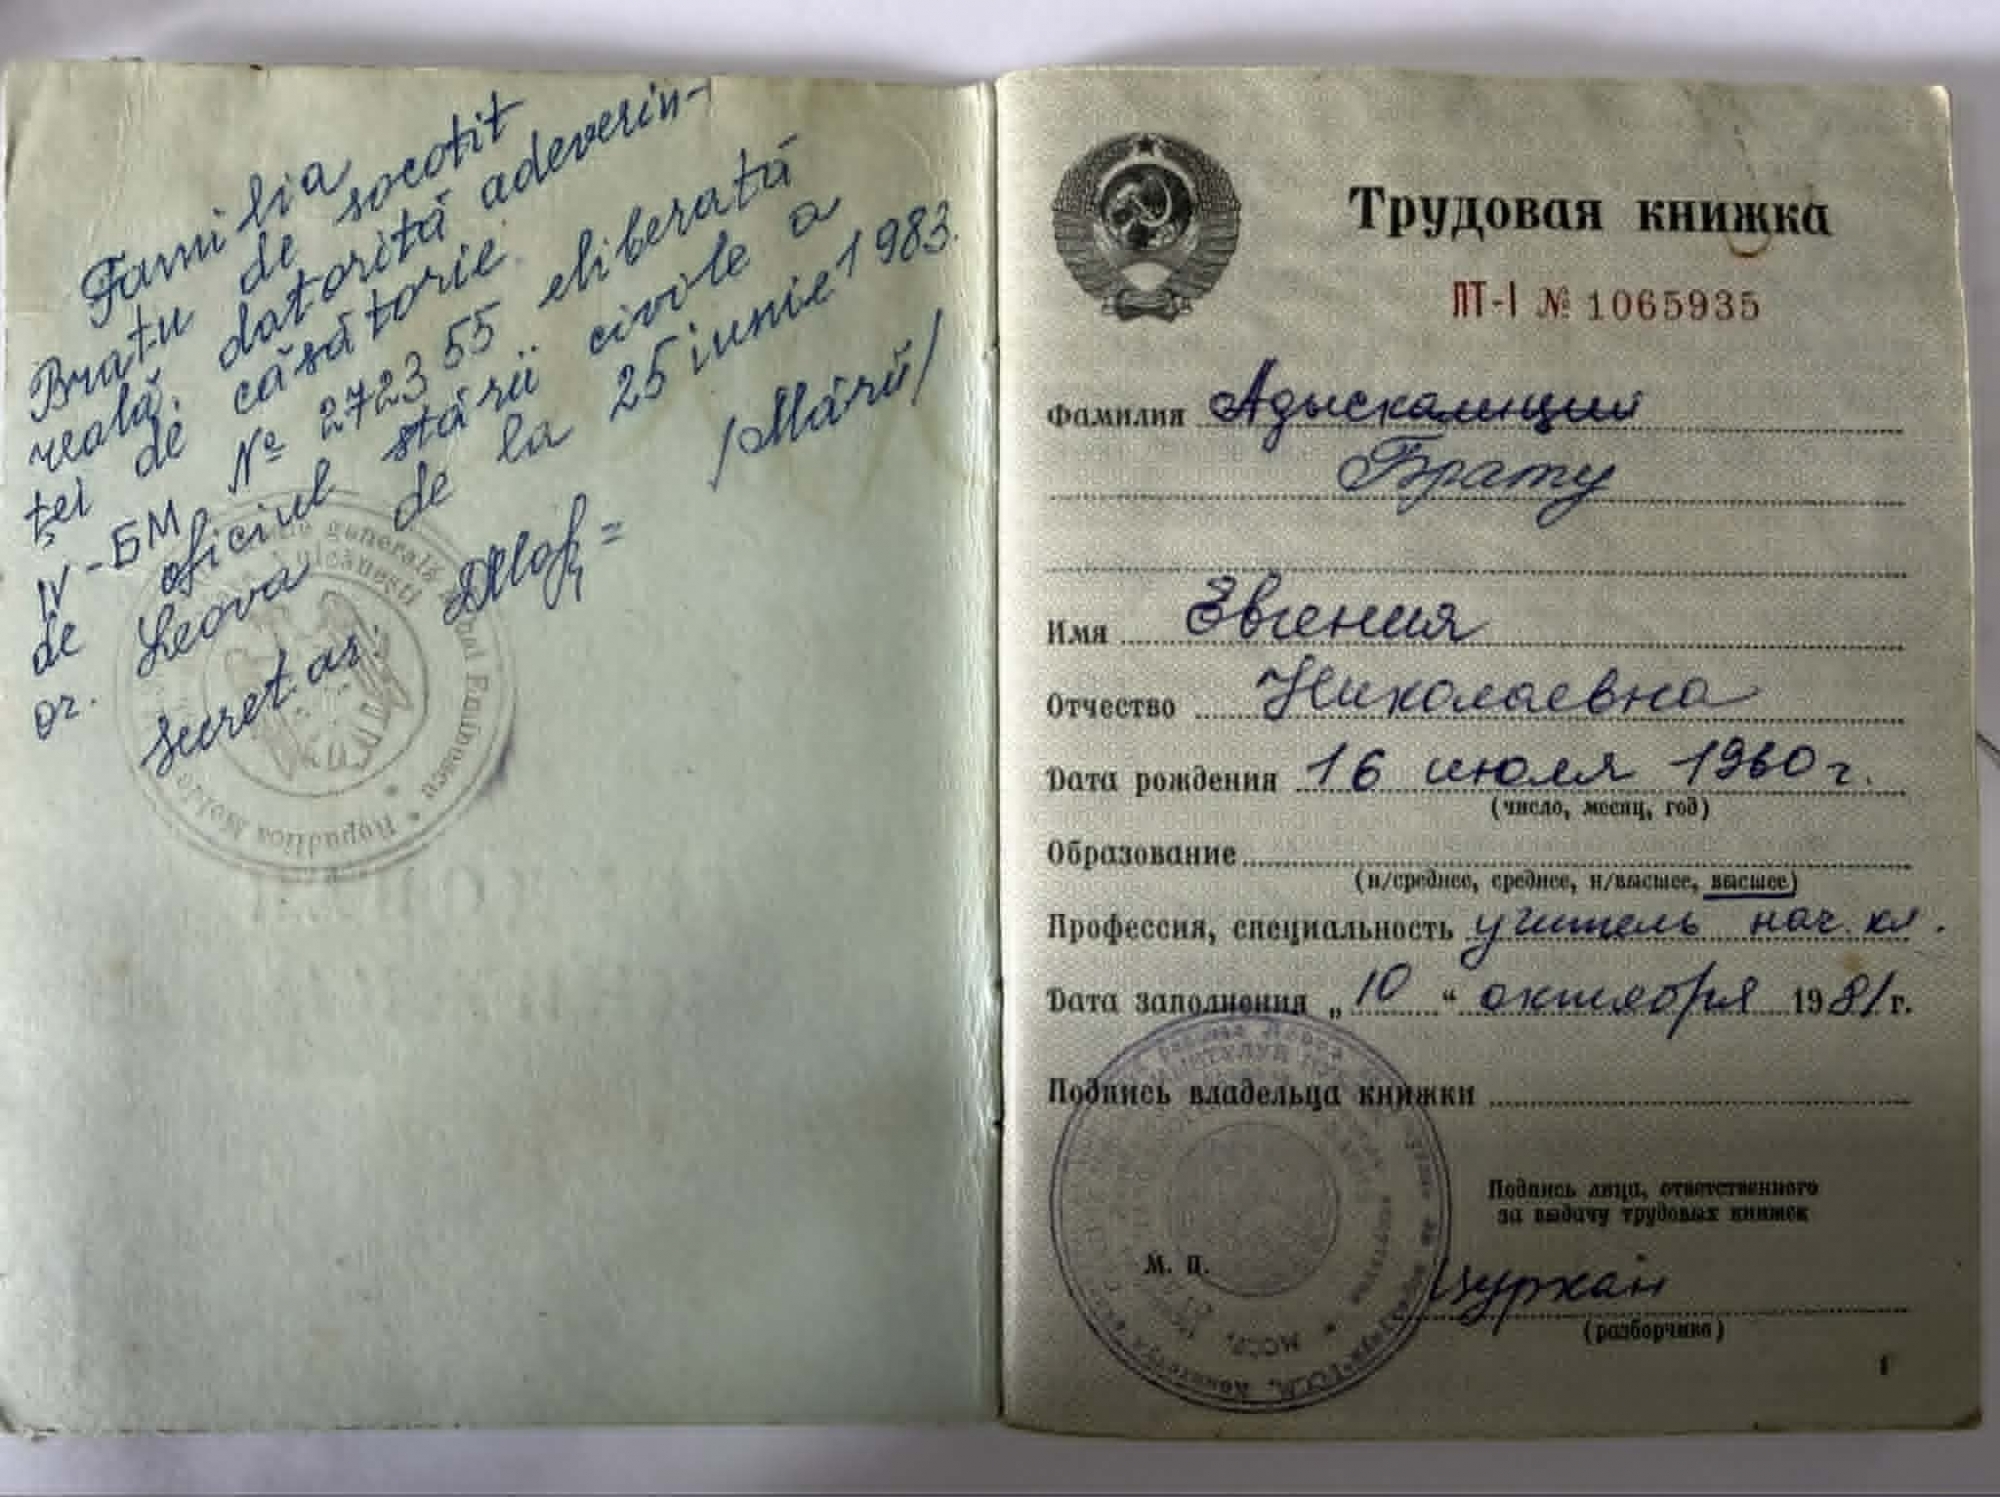 Familia
Bratu de socotit
reală, datorită adeverin-
ței de căsătorie.
IV-БМ № 272355 eliberată
de oficiul stării civile a
or. Leova de la 25 iunie 1983.
Secretar: /Mării/
generală
Republica Moldo
Трудовая книжка
ПТ-I № 1065935
Фамилия Адыскалиций
Брату
Имя Евгения
Отчество Николаевна
Дата рождения 16 июля 1960 г.
(число, месяц, год)
Образование
(н/среднее, среднее, н/высшее, высшее)
Профессия, специальность учитель нач. кл.
Дата заполнения „10“ октября 1981 г.
Подпись владельца книжки
Подпись лица, ответственного
за выдачу трудовых книжек
М. П.
Цуркан
(разборчиво)
МССР
1